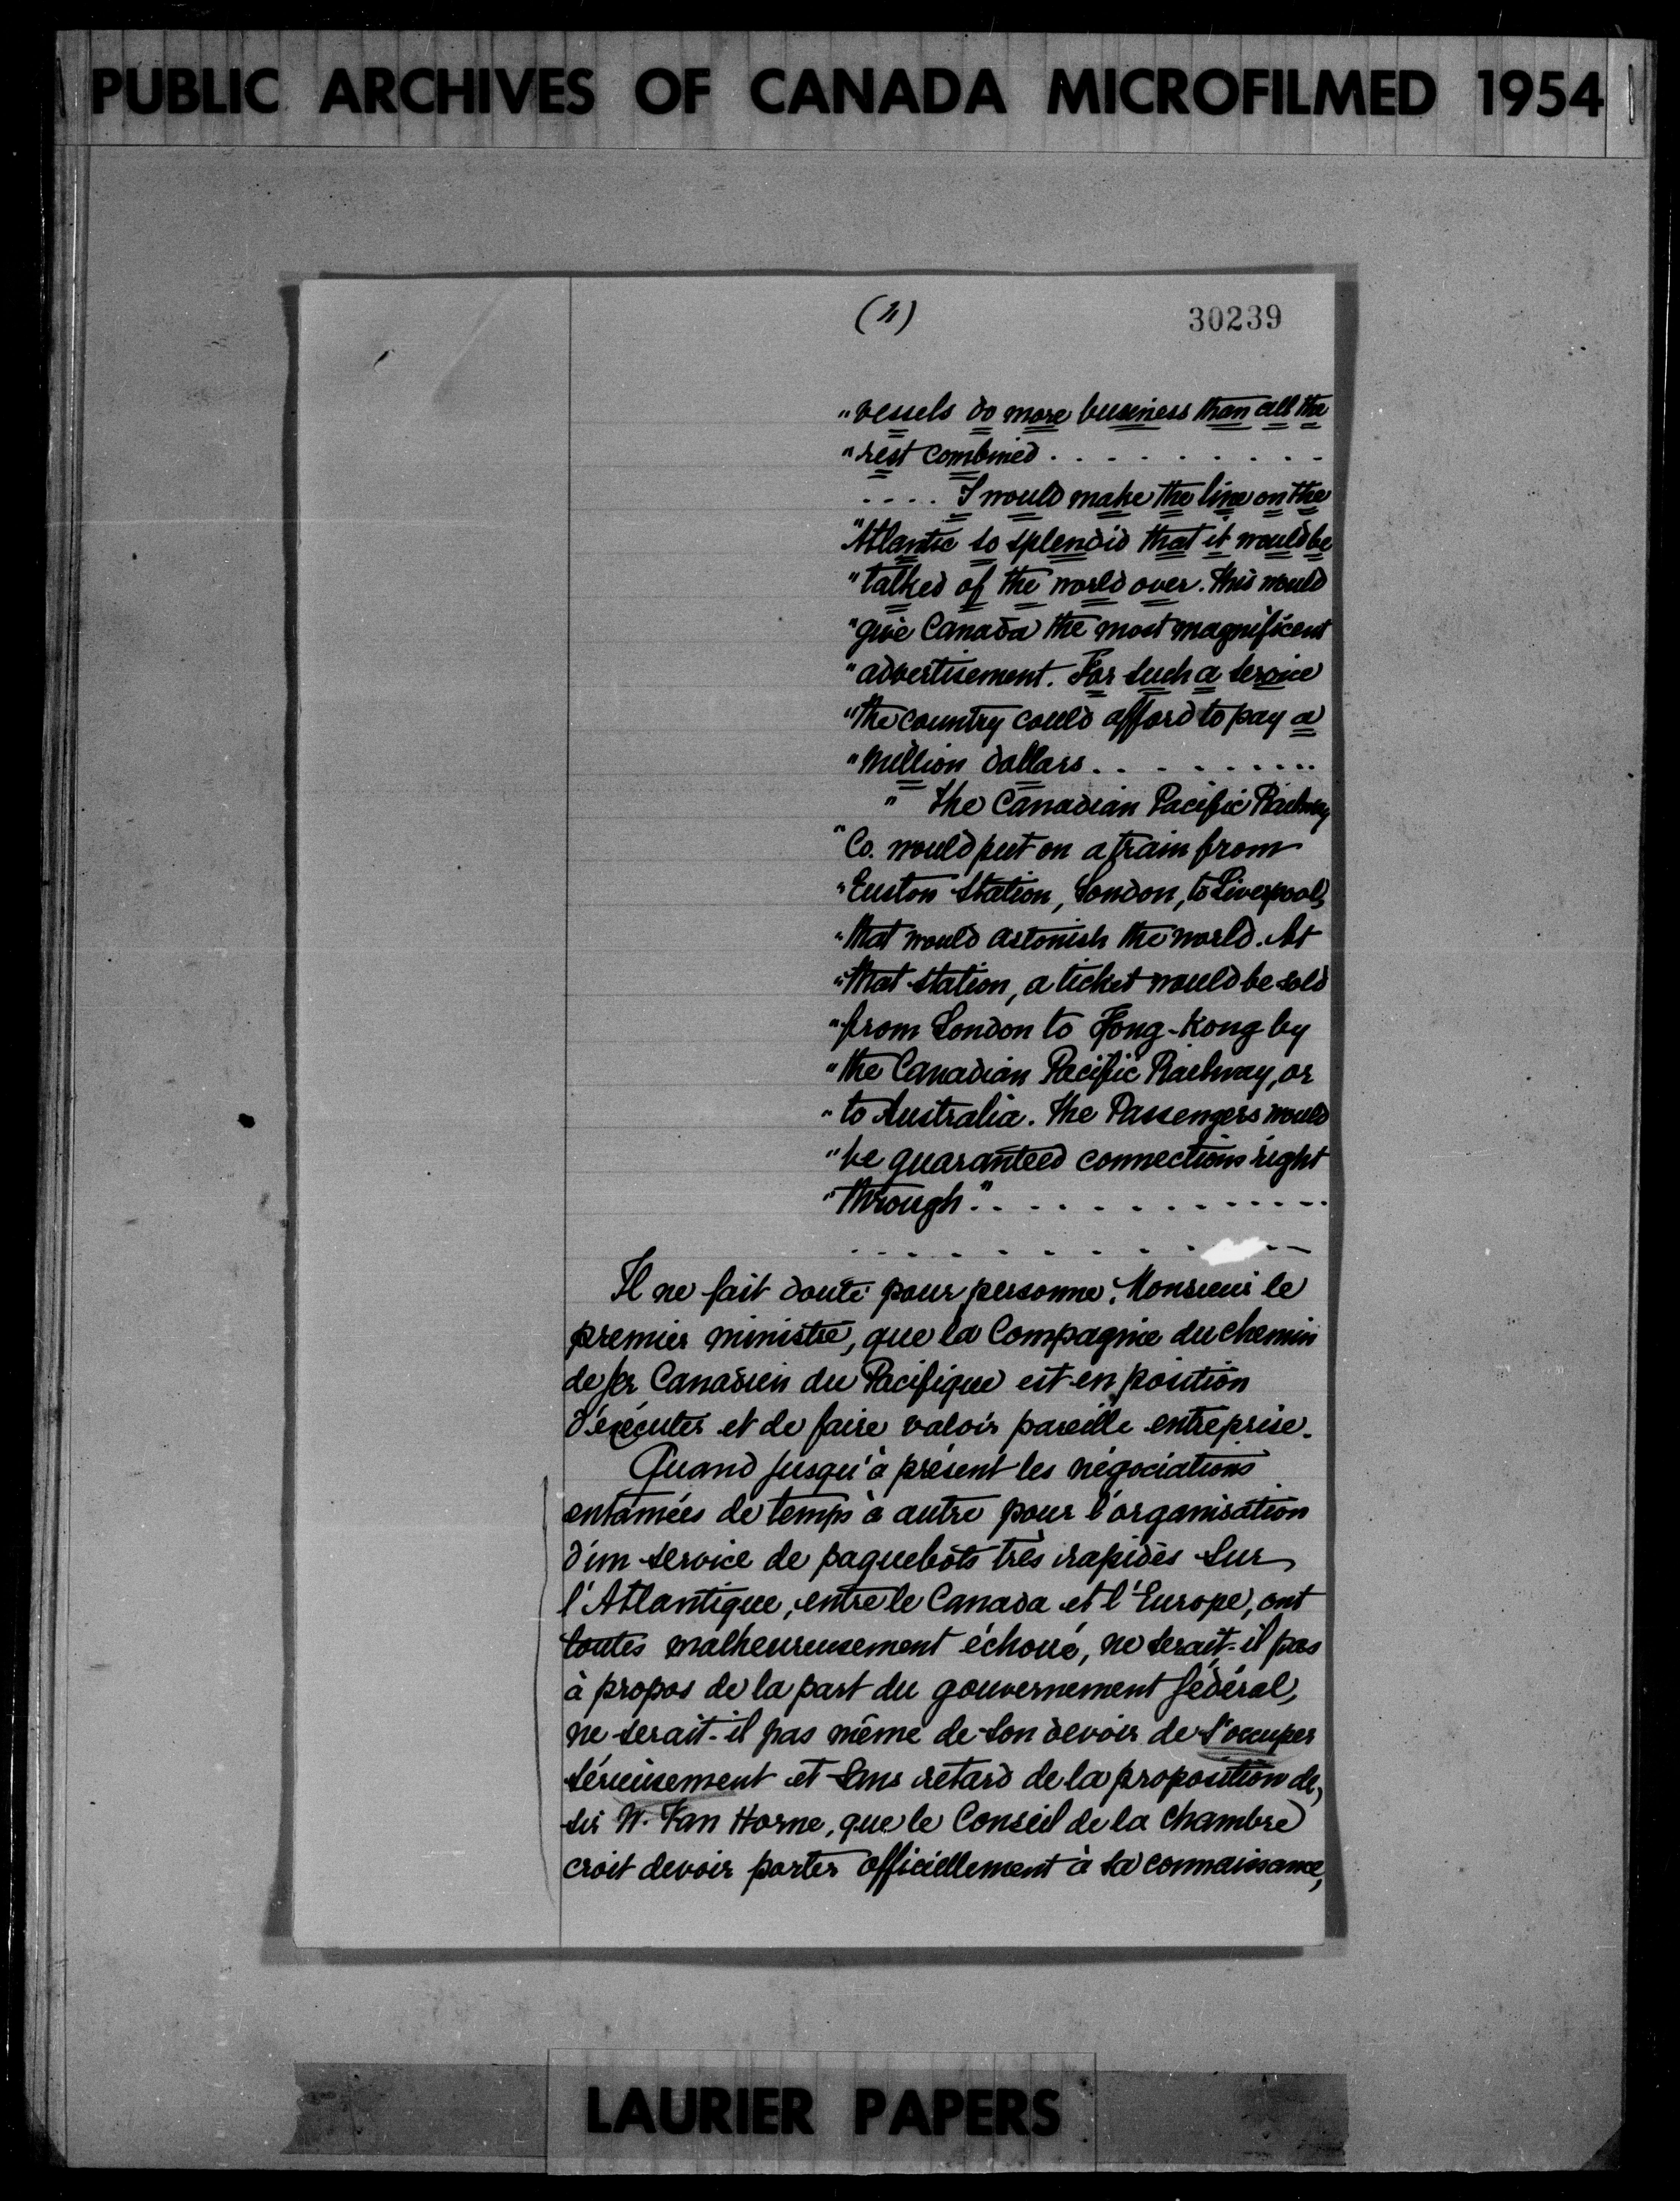 PUBLIC ARCHIVES OF CANADA MICROFILMED 1954
(11)
30239
"vessels do more business than all the
"rest combined . . . . . . . . . .
. . . . I would make the line on the
"Atlantic so splendid that it would be
"talked of the world over. This would
"give Canada the most magnificent
"advertisement. For such a service
"the country could afford to pay a
"million dollars . . . . . . . . . .
" The Canadian Pacific Railway
"Co. would put on a train from
"Euston Station, London, to Liverpool,
"that would astonish the world. At
"that station, a ticket would be sold
"from London to Hong-Kong by
"the Canadian Pacific Railway, or
"to Australia. The Passengers would
"be guaranteed connections right
"through." . . . . . . . . . . . . .
. . . . . . . . . . .
Il ne fait doute pour personne, Monsieur le
premier ministre, que la Compagnie du chemin
de fer Canadien du Pacifique est en position
d'exécuter et de faire valoir pareille entreprise.
Quand jusqu'à présent les négociations
entamées de temps à autre pour l'organisation
d'un service de paquebots très rapides sur
l'Atlantique, entre le Canada et l'Europe, ont
toutes malheureusement échoué, ne serait-il pas
à propos de la part du gouvernement fédéral,
ne serait-il pas même de son devoir de s'occuper
sérieusement et sans retard de la proposition de
sir W. Van Horne, que le Conseil de la chambre
croit devoir porter officiellement à sa connaissance,
LAURIER PAPERS